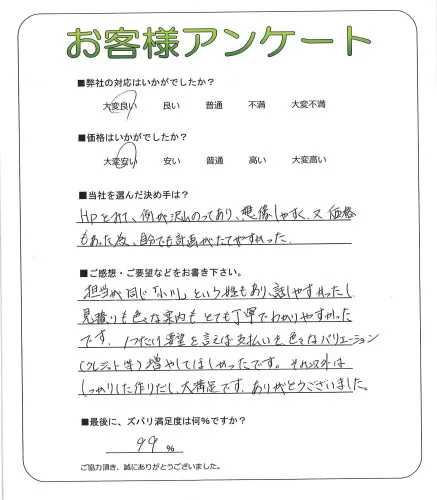 お客様アンケート
■弊社の対応はいかがでしたか？
大変良い 良い 普通 不満 大変不満
■価格はいかがでしたか？
大変安い 安い 普通 高い 大変高い
■当社を選んだ決め手は？
HPを見て、例が沢山のってあり、想像しやすく、又価格
もあった為、自分でも計画がたてやすかった。
■ご感想・ご要望などをお書き下さい。
担当が同じ「小川」という姓もあり、話しやすかったし
見積りも色々な案内もとても丁寧でわかりやすかった
です。1つだけ要望を言えば支払いも色々なバリエーション
(クレジット等)増やしてほしかったです。それ以外は
しっかりした作りだし、大満足です。ありがとうございました。
■最後に、ズバリ満足度は何％ですか？
99 %
ご協力頂き、誠にありがとうございました。